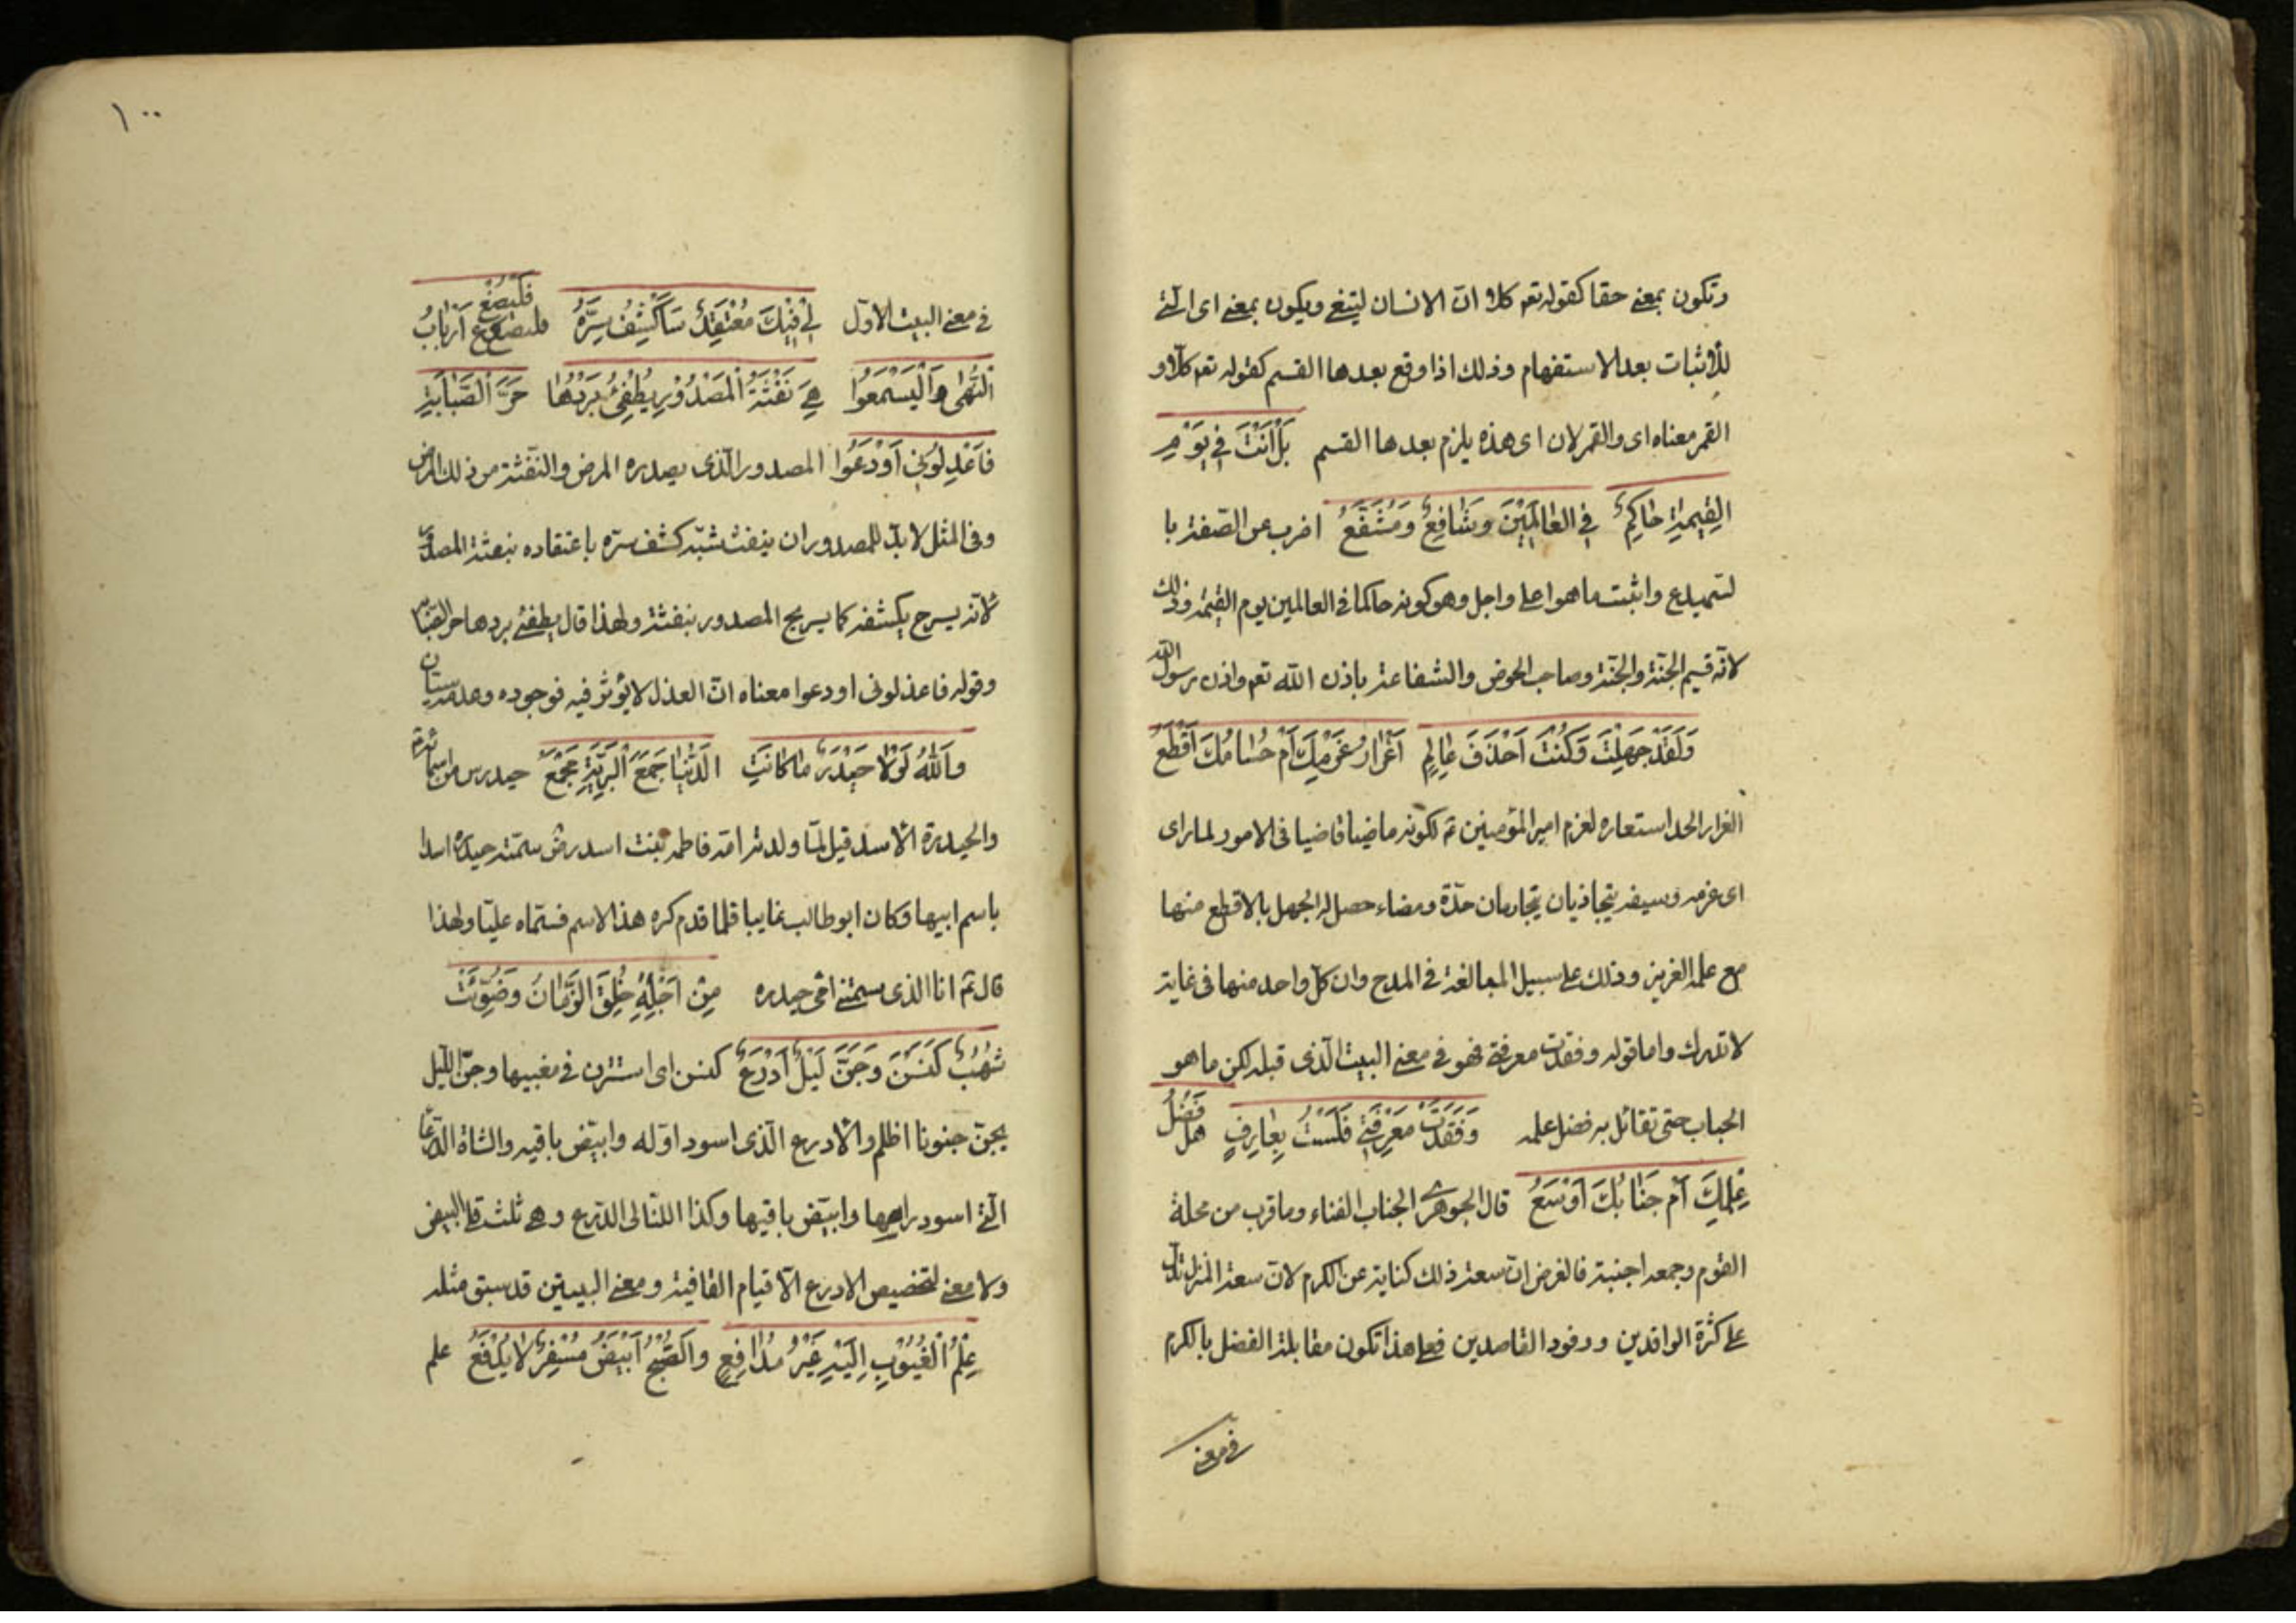 وتكون بمعنى حقا كقوله تعم كلا ان الانسان ليتغى ويكون بمعنى اى التى
للاثبات بعد الاستفهام وذلك اذا وقع بعدها القسم كقوله تعم كلا و
القمر معناه اى والقمر لان اى هذه يلزم بعدها القسم بَلْ اَنْتَ فِي يَوْمِ
الْقِيٰمَةِ حَاكِمٌ فِي الْعَالَمِيْنَ وَشَافِعٌ وَمُشَفَّعُ اضرب عن الصفة با
لتميدع واثبت ما هو اعلى واجل وهو كونه حاكما فى العالمين يوم القيمة وذلك
لانه قسيم الجنة والجنة وصاحب الحوض والشفاعة باذن الله تعم واذن رسول الله
وَلَقَدْ جَهِلْتَ وَكُنْتَ اَحْذَقَ عَالِمٍ اَغِرَارُ عَزْمِكَ اَمْ حُسَامُكَ اَقْطَعُ
الغرار الحد استعاره لعزم امير المؤمنين ع لكونه ماضيا قاضيا فى الامور لما راى
اى عزمه وسيفه يتجاذبان يتجاريان حدّة ومضاء حصل له الجهل بالاقطع منها
مع علمه الغزير وذلك على سبيل المبالغة فى المدح وان كل واحد منها فى غاية
لا تدرك واما قوله وفقدت معرفتى فهو فى معنى البيت الّذى قبله لكن ما هو
الجناب حتى تقائل به فضل علمه وَفَقَدْتُ مَعْرِفَتِي فَلَسْتُ بِعَارِفٍ هل فَضْلُ
عِلْمِكَ اَمْ جَنَابُكَ اَوْسَعُ قال الجوهرى الجناب الفناء وما قرب من محلة
القوم وجمعه اجنبة فالغرض ان سعة ذلك كناية عن الكرم لان سعة المنزل تدل
على كثرة الوافدين ووفود القاصدين فعلى هذا تكون مقابلة الفضل بالكرم
فى معنى
١٠٠
فى معنى البيت الاول لِيْ فِيْكَ مُعْتَقَدٌ سَاَكْشِفُ سِرَّهُ فَلْيُصْغِ اَرْبَابُ
النُّهٰى وَلْيَسْمَعُوا هِيَ نَفْثَةُ الْمَصْدُوْرِ يُطْفِئُ بَرْدُهَا حَرَّ الصَّبَابَةِ
فَاعْذِلُوْنِي اَوْدَعُوا المصدور الّذى بصدره المرض والنفثة من ذلك المرض
وفى المثل لابدّ للمصدور ان ينفث شبّه كشف سرّه باعتقاده بنفثة المصدور
لانه يسرح بكشفه كما يسريح المصدور بنفثة ولهذا قال يطفئ بردها حر الصبابة
وقوله فاعذلونى اودعوا معناه ان العذل لا يؤثر فيه فوجوده وعدمه سيّان
وَاللّٰهُ لَوْلَا حَيْدَرٌ مَا كَانَتِ الدُّنْيَا وَلَا جَمَعَ الْبَرِيَّةَ مَجْمَعُ حيدر من اسمائه
والحيدرة الاسد قيل لمّا ولدته امّه فاطمه بنت اسد رض سمته حيدرة اسدا
باسم ابيها وكان ابو طالب غايبا فلما قدم كره هذا الاسم فسمّاه عليّا ولهذا
قال ع انا الذى سمتنى امى حيدره مِنْ اَجْلِهِ خُلِقَ الزَّمَانُ وَضُوِّئَتْ
شُهُبٌ كَنَسْنَ وَجَنَّ لَيْلٌ اَدْرَعُ كنسن اى استترن فى مغيبها وجنّ الليل
يجنّ جنونا اظلم والادرع الّذى اسود اوّله وابيّض باقيه والشاة الدرعاء
الّتى اسود راسها وابيّض باقيها وكذا الليالى الدّرع وهى ثلث قلى البيض
ولا معنى لتخصيص الادرع الّا قيام القافية ومعنى البيتين قد سبق مثله
عِلْمُ الْغُيُوْبِ اِلَيْهِ غَيْرُ مُدَافَعٍ وَالصُّبْحُ اَبْيَضُ مُسْفِرٌ لَا يُدْفَعُ علم